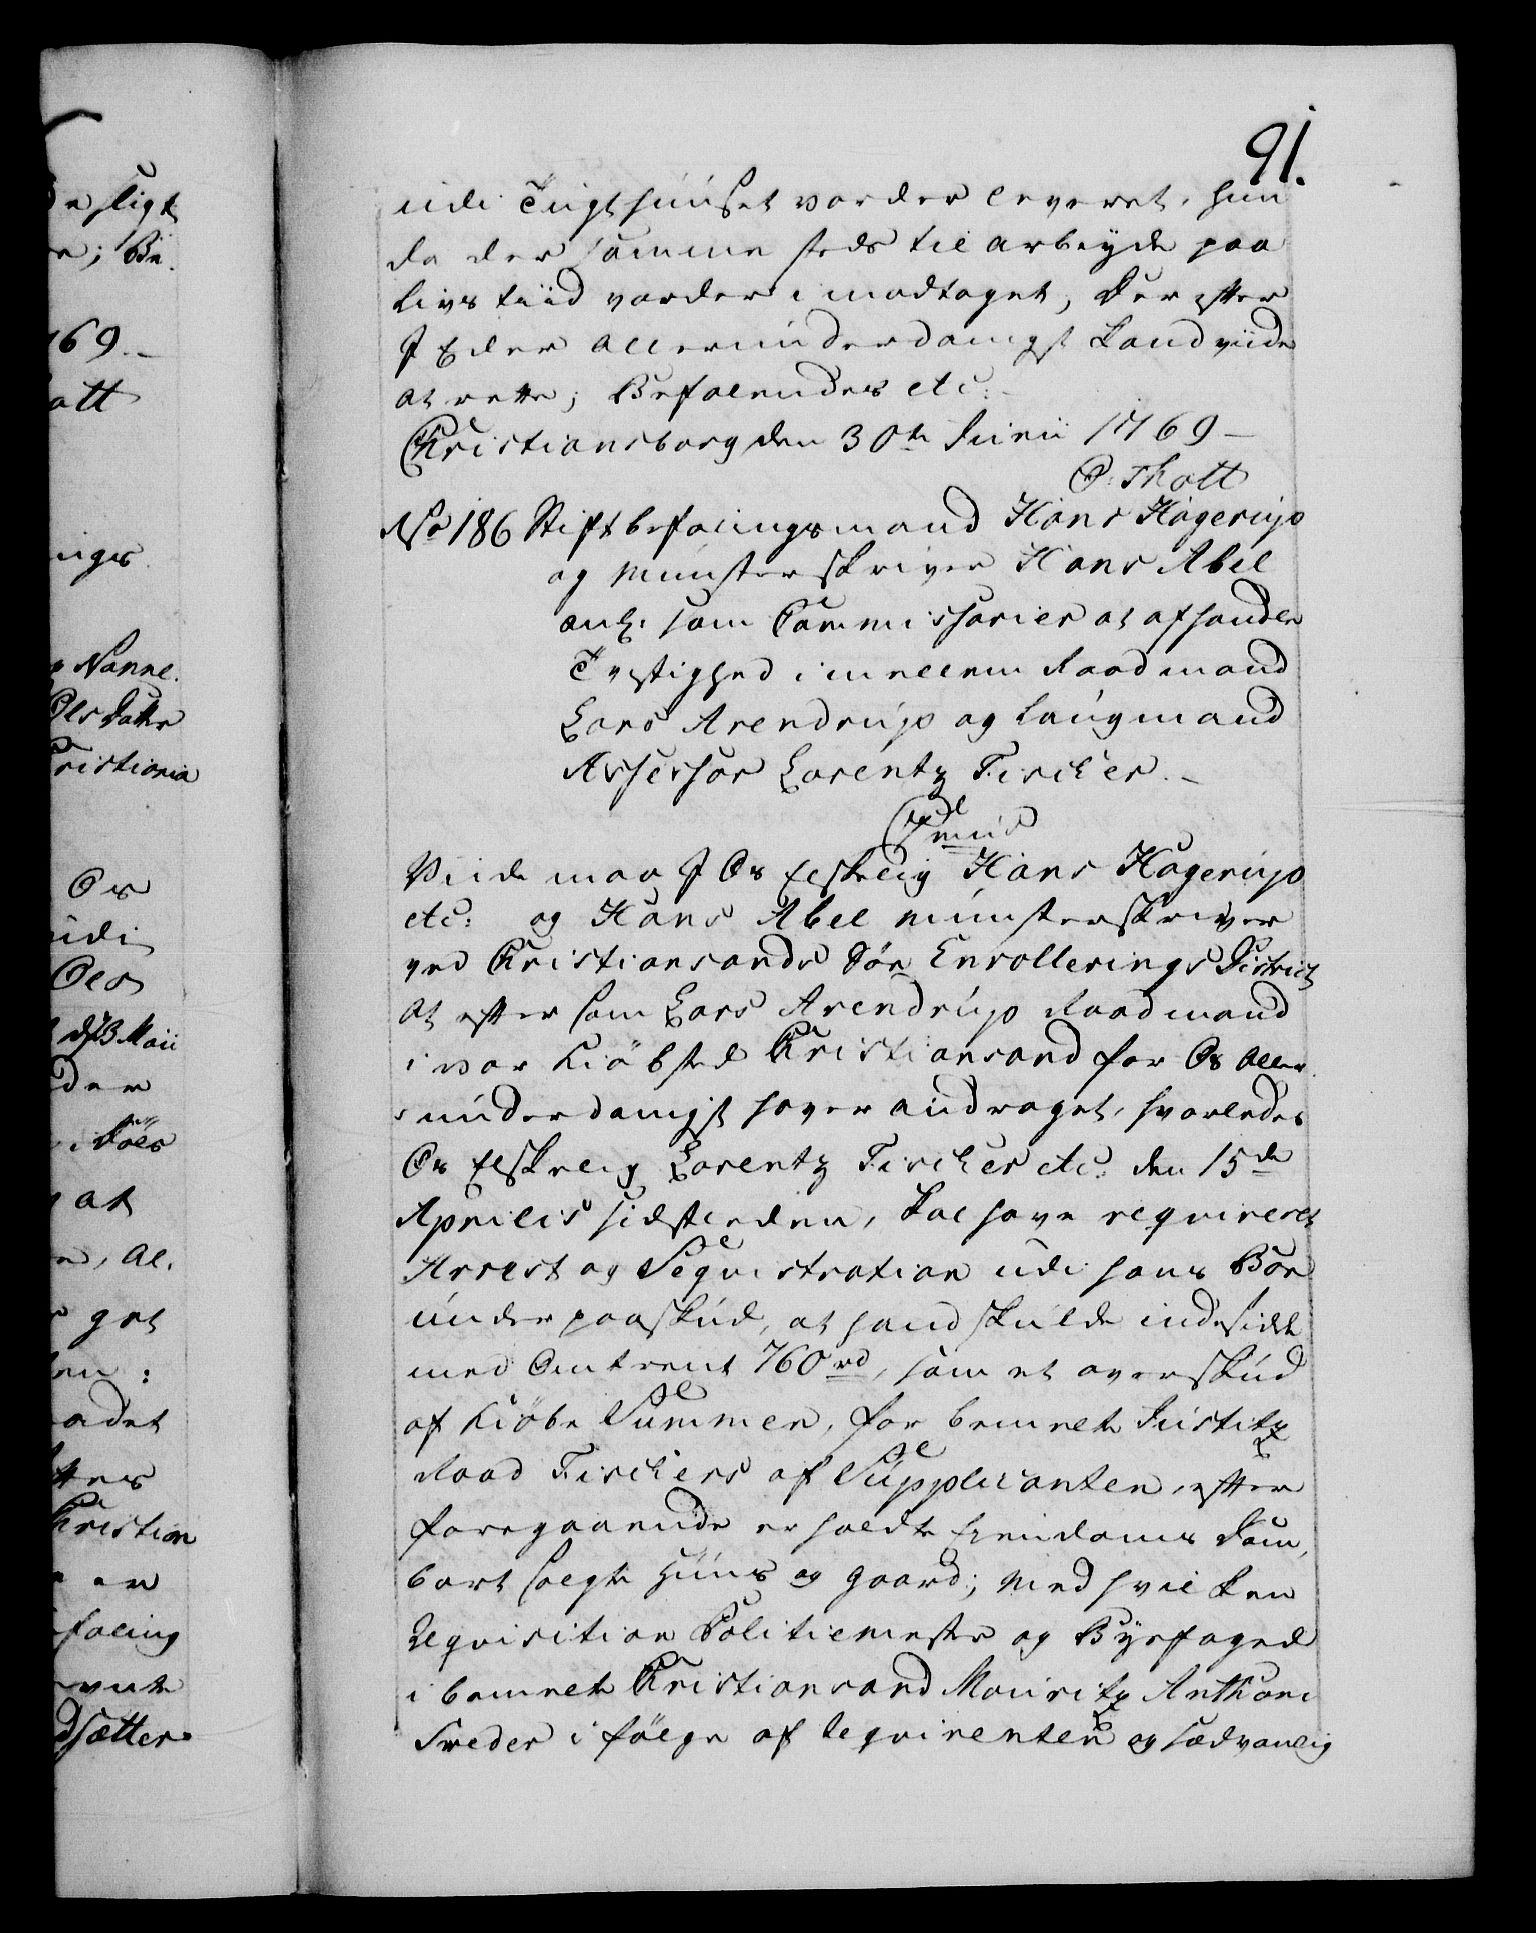 91.
udi Tugthuuset vorder leveret, hun
da der sammesteds til arbeyde paa
Livs tiid vorder imodtaget, Derefter
I Eder allerunderdanigst kand viide
at rette; Befalendes etc:
Christiansborg den 30te Junii 1769 —
O. Thott
No 186 Stiftbefalingsmand Hans Hagerup
og Mynsterskriver Hans Abel
anl. som Commissarier at afhandle
Tvistighed imellem Raadmand
Lars Arendrup og Laugmand
Assessor Lorentz Fischer. —
C 7mus
Viide maa I Os elskelig Hans Hagerup
etc: og Hans Abel Mynsterskriver
ved Christiansands Söe Enrollerings District
at eftersom Lars Arendrup Raadmand
i vor Kiöbsted Christiansand for Os aller
underdanigst haver andraget, hvorledes
Os elskelig Lorentz Fischer etc: den 15de
Aprilis sidstleden, skal have requireret
Arrest og Sequistration udi hans Boe
under paaskud, at hand skulde indesidde
med omtrent 760 rd, som et overskud
af Kiöbe Summen, for bemelte Justitz
Raad Fischers af Supplicanten, efter
foregaaende erholdte Eiendoms Dom,
bort solgte Huus og Gaard; Med hvilken
Requisition Politiemester og Byefoged
i bemelte Christiansand Mouritz Anthoni
Sweder i fölge af Requirenten og sædvanlig
e sligt
e; Be.
169.—
ott
nges
Nanne.
Ols datter
Christiania
Os
udi
Ols
d. 23 Maii
der
at
e, al.
get
en:
adet
ttes
Christian
er
faling
dsætter